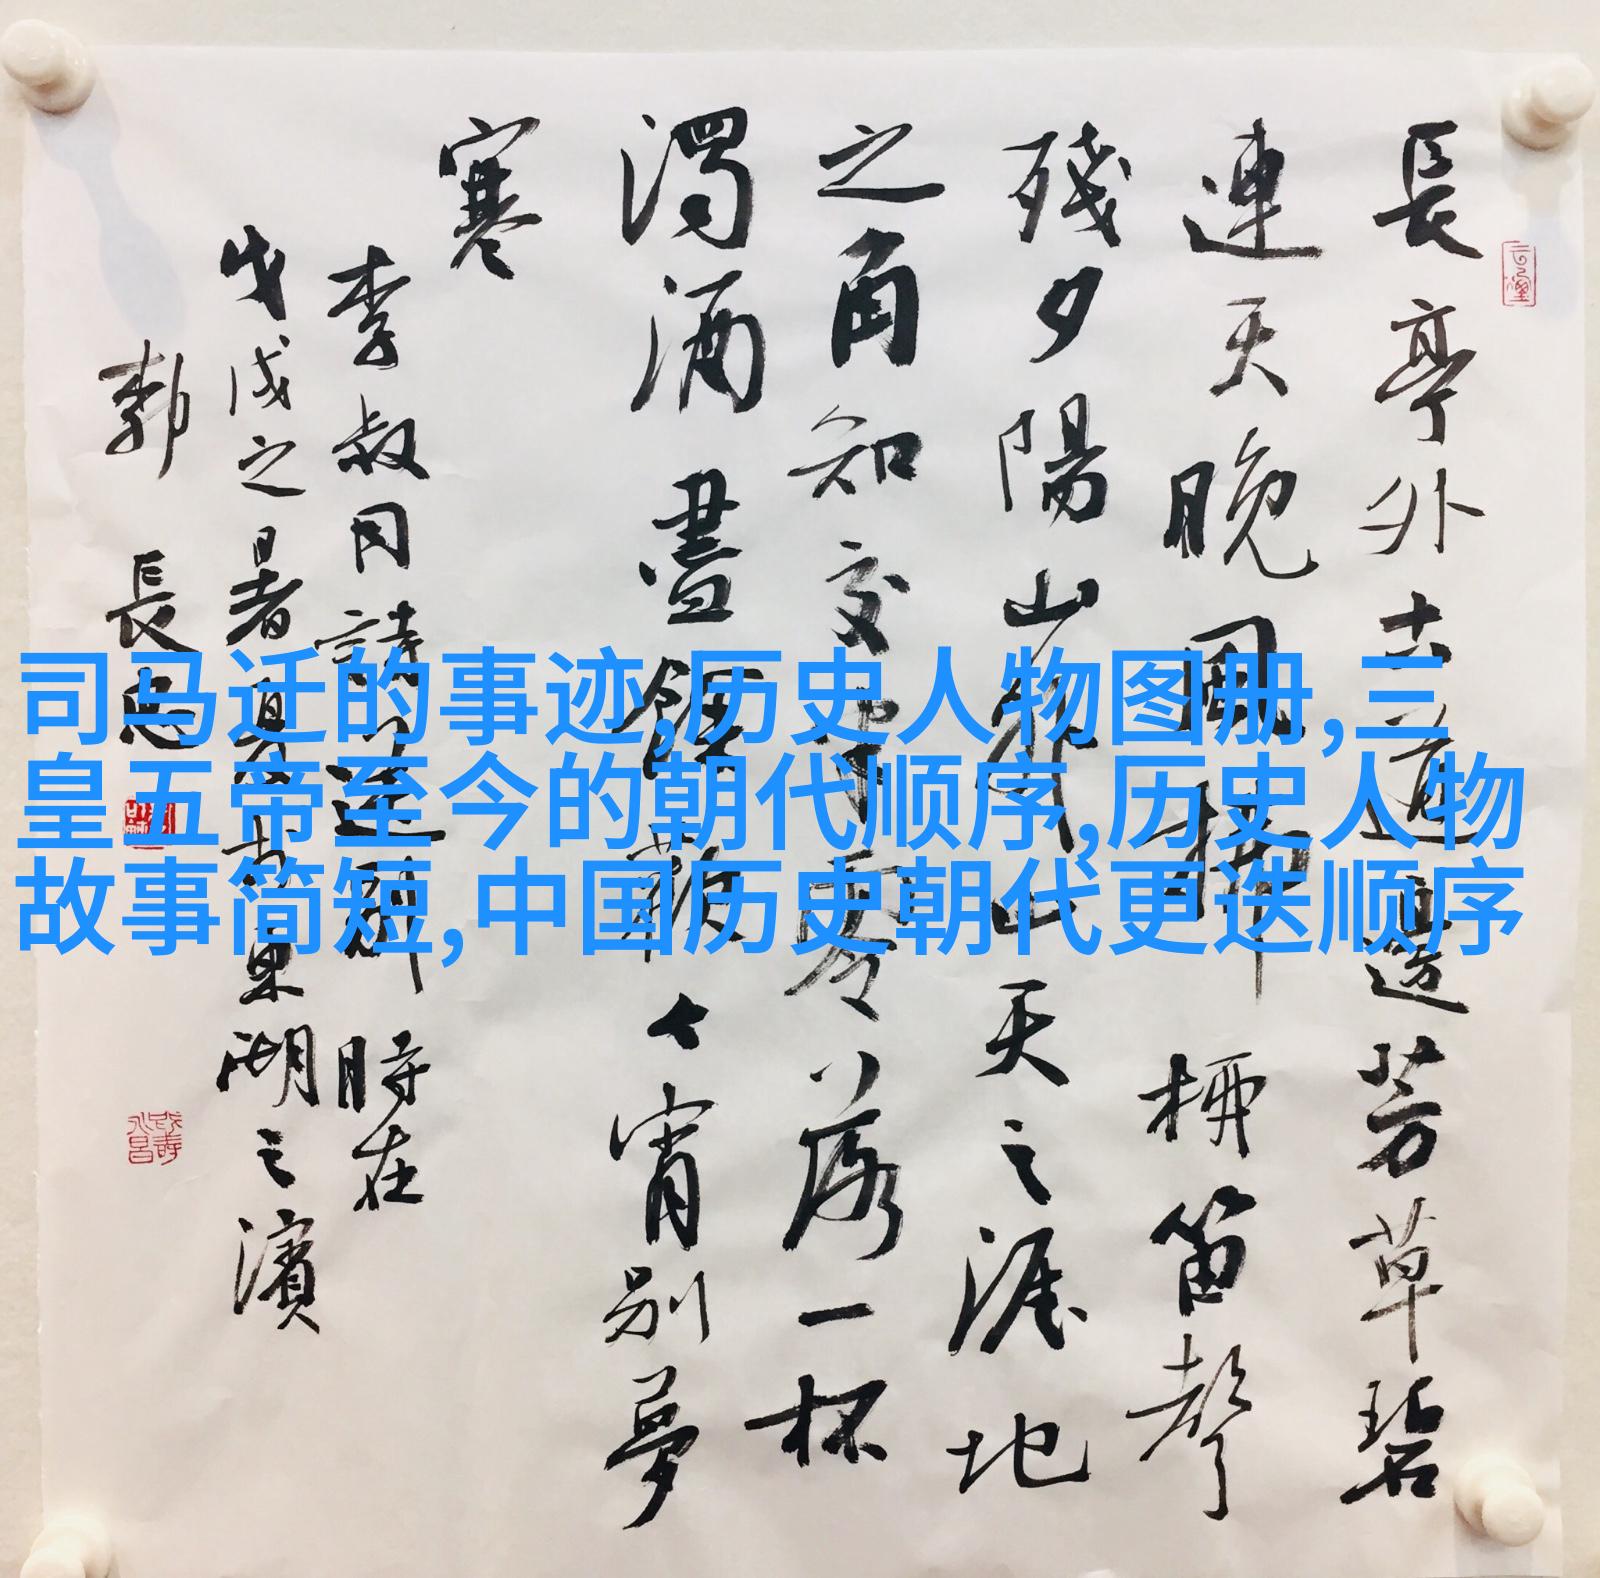 長亭外古道邊芳草碧
連天晚風拂柳笛聲
殘夕陽山外山天之涯地
之角知交半零落一杯
濁酒盡餘歡今宵別夢
寒
李叔同詩送別 時在
戊戌之暑月於東湖之濱
郭 長忠
司马迁的事迹,历史人物图册,三
皇五帝至今的朝代顺序,历史人物
故事简短,中国历史朝代更迭顺序